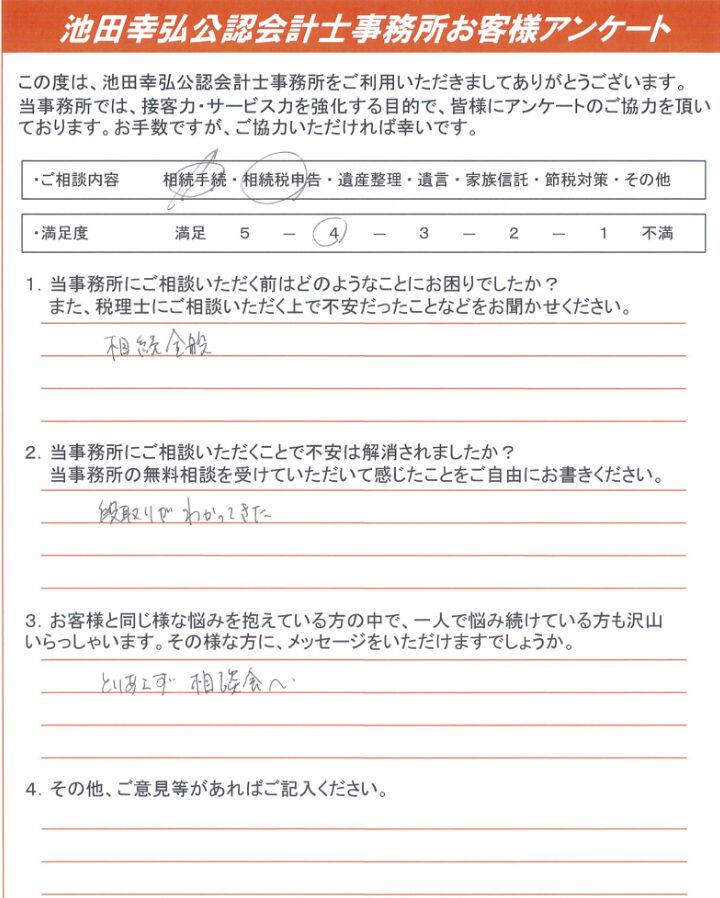 池田幸弘公認会計士事務所お客様アンケート
この度は、池田幸弘公認会計士事務所をご利用いただきましてありがとうございます。
当事務所では、接客力・サービス力を強化する目的で、皆様にアンケートのご協力を頂いております。お手数ですが、ご協力いただければ幸いです。
・ご相談内容 相続手続・相続税申告・遺産整理・遺言・家族信託・節税対策・その他
・満足度 満足 5 － 4 － 3 － 2 － 1 不満
1. 当事務所にご相談いただく前はどのようなことにお困りでしたか？
また、税理士にご相談いただく上で不安だったことなどをお聞かせください。
相続全般
2. 当事務所にご相談いただくことで不安は解消されましたか？
当事務所の無料相談を受けていただいて感じたことをご自由にお書きください。
段取りがわかってきた
3. お客様と同じ様な悩みを抱えている方の中で、一人で悩み続けている方も沢山
いらっしゃいます。その様な方に、メッセージをいただけますでしょうか。
とりあえず 相談会へ
4. その他、ご意見等があればご記入ください。